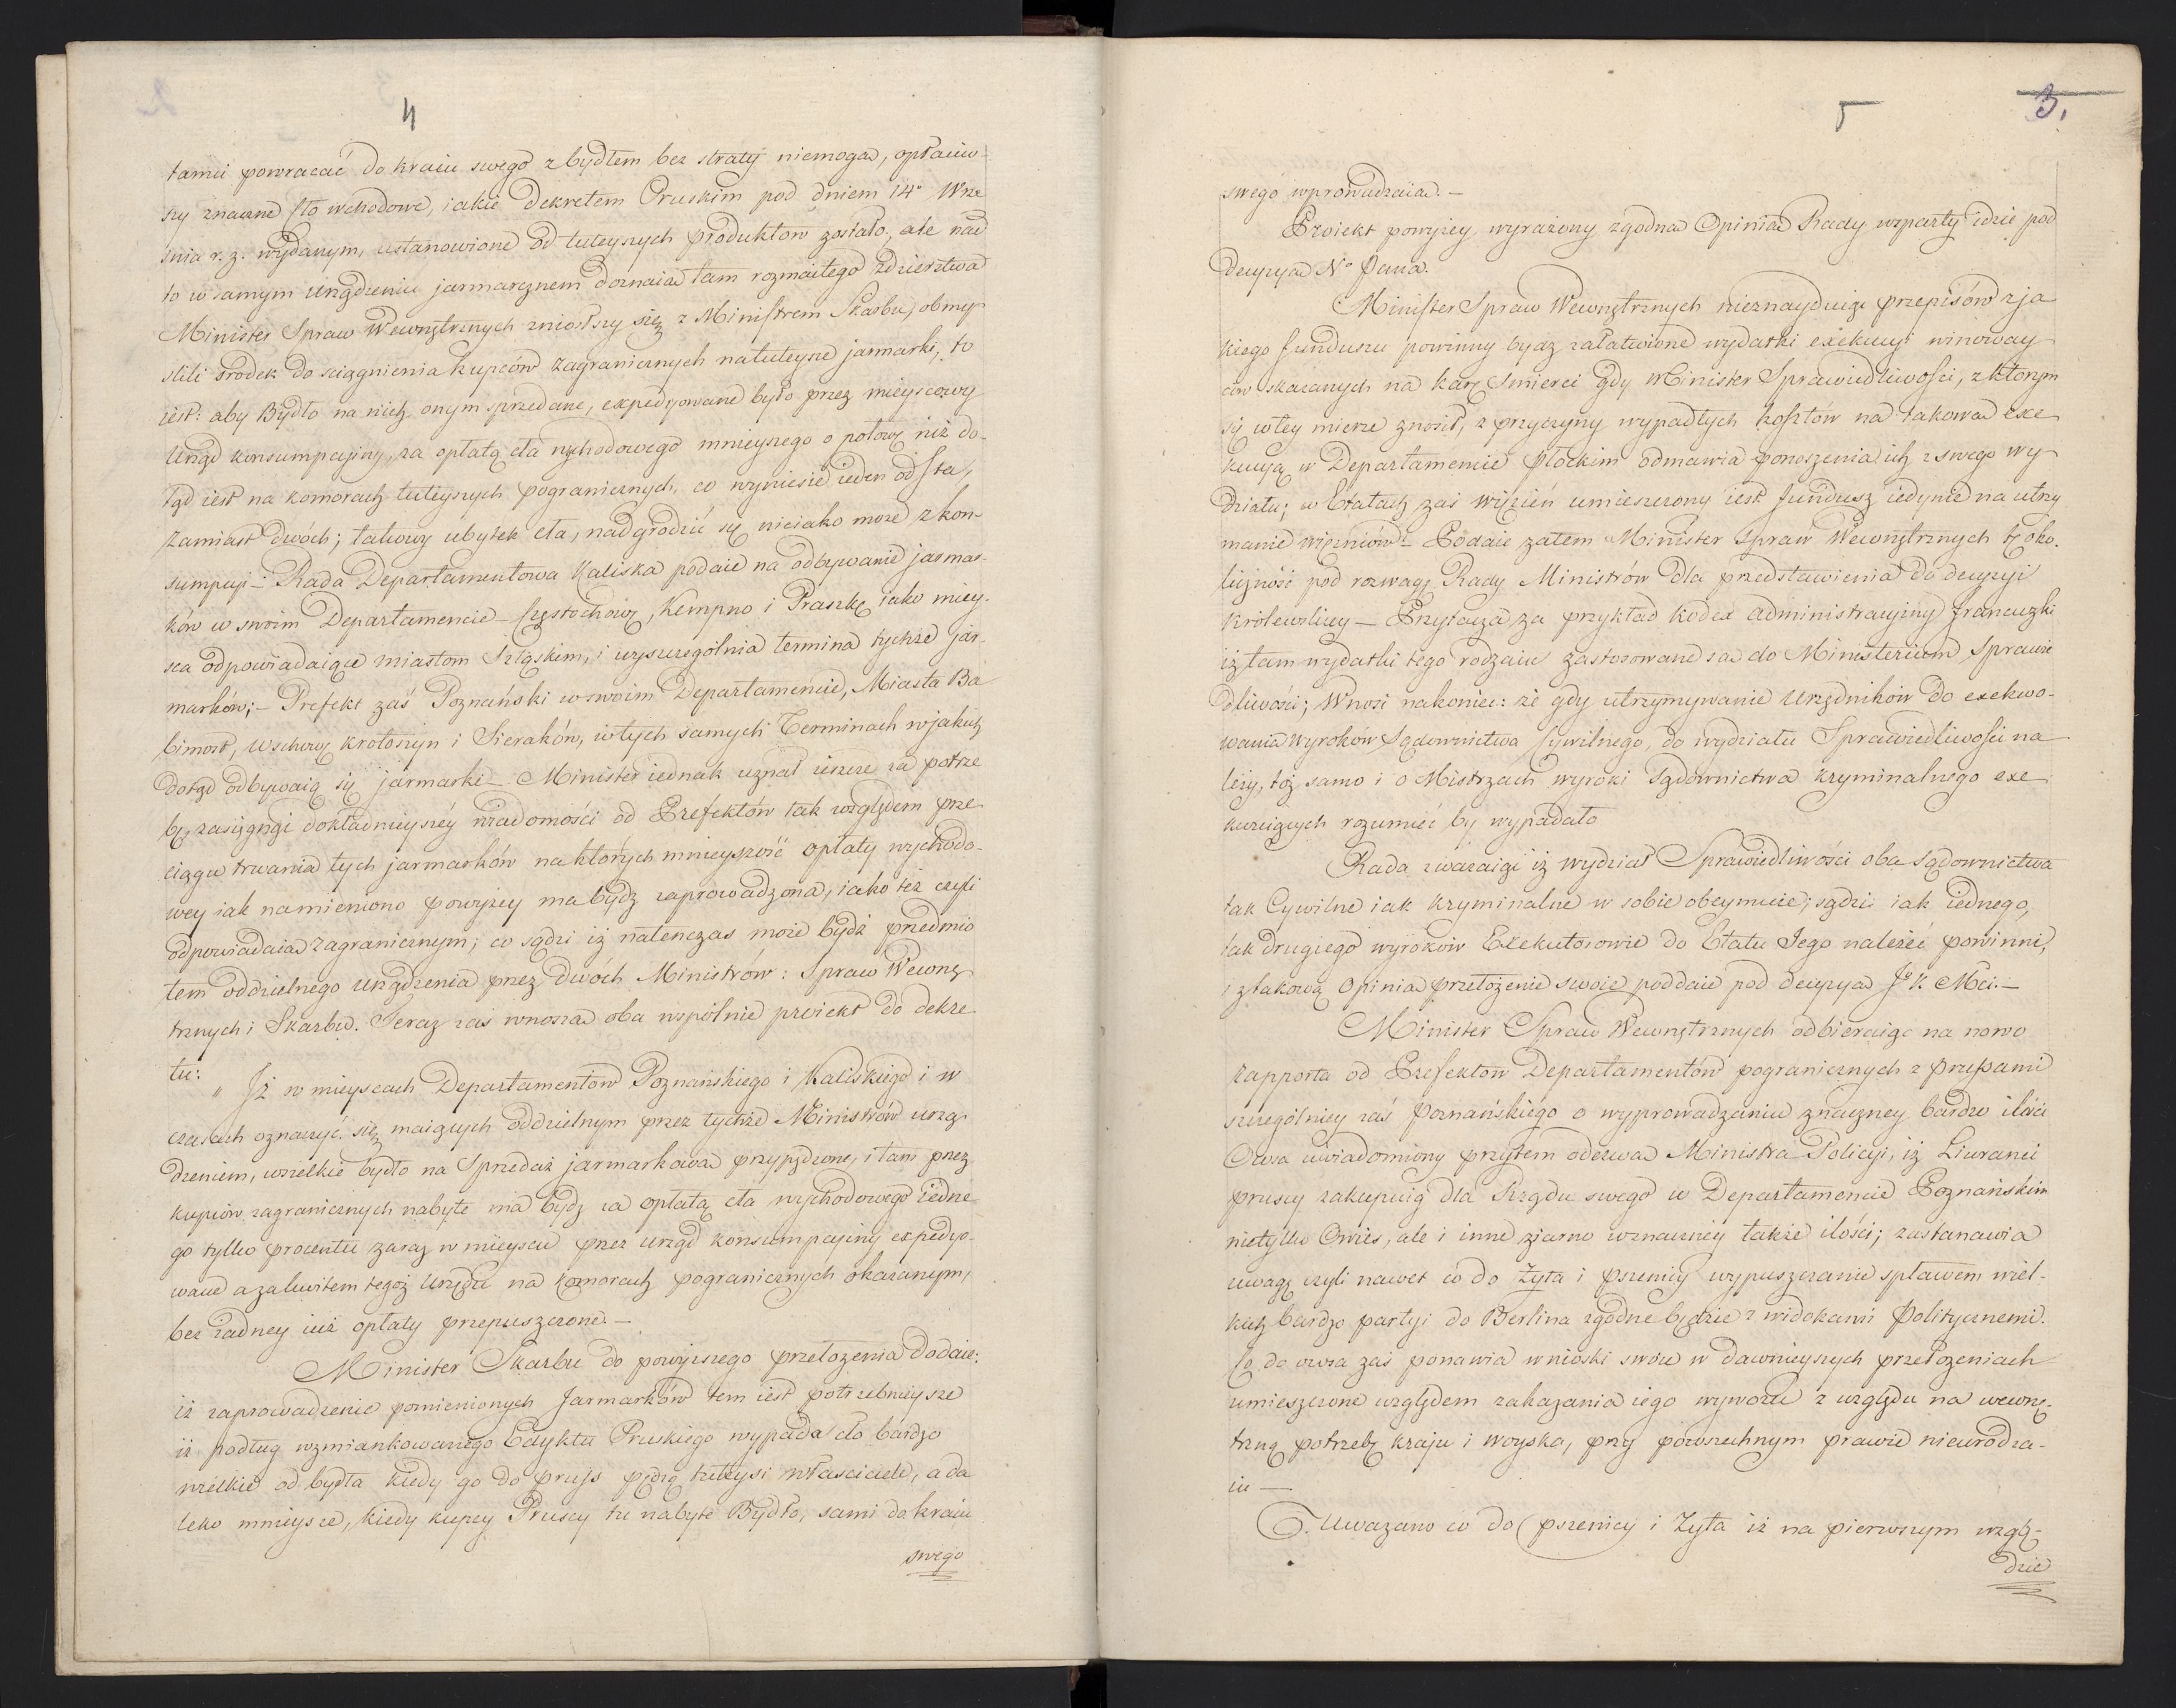 4
tami powracać do kraiu swego z bydłem bez straty niemogą, opłaciw-
szy znaczne cło wchodowe, iakie Dekretem Pruskim pod dniem 14º Wrze
śnia r. z. wydanym, ustanowione od tuteyszych produktów zostało, ale nad
to w samym urządzeniu jarmarcznem doznaią tam rozmaitego zdzierstwa
Minister Spraw Wewnętrznych zniósłszy się z Ministrem Skarbu, obmy
slili srodek do sciągnienia kupców zagranicznych na tuteysze jarmarki, to
iest: aby Bydło na nich onym sprzedane, expedyowane było przez mieyscowy
Urząd konsumpcyiny, za opłatą cła wychodowego mnieyszego o połowę niż do-
tąd iest na komorach tuteyszych pogranicznych, co wyniesie ieden od sta,
zamiast dwóch; takowy ubytek cła, nadgrodzić się nieiako może z kon-
sumpcyi – Rada Departamentowa Kaliska podaie na odbywanie jarmar-
ków w swoim Departamencie – Częstochowę, Kempno i Praszkę iako miey-
sca odpowiadaiące miastom Szląskim, i wyszczególnia termina tychże jar-
marków; – Prefekt zaś Poznański w swoim Departamencie, Miasta Ba
bimost, Wschowę Krotoszyn i Sieraków, w tych samych Terminach w jakich
dotąd odbywaią się jarmarki – Minister iednak uznał ieszcze za potrze
bę zasięgnąć dokładnieyszéy wiadomości od Prefektów tak względem prze
ciągu trwania tych jarmarków na których mnieyszość opłaty wychodo-
wey iak namieniono powyżey ma bydź zaprowadzona, iako też czyli
odpowiadaią zagranicznym; co sądzi iż natenczas może bydź przedmio
tem oddzielnego urządzenia przez dwóch Ministrów: Spraw Wewnę
trznych i Skarbu. Teraz zaś wnoszą oba wspólnie proiekt do dekre
tu:
„ Iż w mieyscach Departamentów Poznańskiego i Kaliskiego i w
czasach oznaczyć się maiących oddzielnym przez tychże Ministrów urzą-
dzeniem, wszelkie bydło na Sprzedaż jarmarkową przypędzone, i tam przez
kupców zagranicznych nabyte ma bydź za opłatą cła wychodowego iedne
go tylko procentu zaraz w mieyscu przez urząd konsumpcyiny expedyo-
wane a za kwitem tegoż Urzędu na komorach pogranicznych okazanym,
bez żadney iuż opłaty przepuszczone. –
Minister Skarbu do powyższego przełożenia dodaie:
iż zaprowadzenie pomienionych Jarmarków tem iest potrzebnieysze
iż podług wzmiankowanego Edyktu Pruskiego wypada cło bardzo
wielkie od bydła kiedy go do Pruss pędzą tuteysi właściciele, a da
leko mnieysze, kiedy kupcy Pruscy tu nabyte Bydło, sami do kraiu
swego
5
3.
swego wprowadzaią. –
Proiekt powyżey wyrażony zgodną Opinią Rady wsparty idzie pod
decyzyą Nº Pana.
Minister Spraw Wewnętrznych nieznayduiąc przepisów z ja
kiego funduszu powinny bydź załatwione wydatki exekucyi winoway
ców skazanych na karę smierci gdy Minister Sprawiedliwości, z którym
się w tey mierze znosił, z przyczyny wypadłych kosztów na takową exe
kucyą w Departamencie Płockim odmawia ponoszenia ich z swego wy-
działu; w Etatach zaś więzień umieszczony iest fundusz iedynie na utrzy
manie więzniów – Podaie zatem Minister Spraw Wewnętrznych tę oko-
liczność pod rozwagę Rady Ministrów dla przedstawienia do decyzyi
Królewskiey – Przytacza za przykład kodex administracyiny francuzki
iż tam wydatki tego rodzaiu zastosowane są do Ministerium Sprawie
dliwości; Wnosi nakoniec: że gdy utrzymywanie Urzędników do exekwo-
wania Wyroków Sądownictwa Cywilnego, do wydziału Sprawiedliwości na
leży, toż samo i o Mistrzach wyroki Sądownictwa kryminalnego exe
kwuiących rozumieć by wypadało
Rada zważaiąc iż wydział Sprawiedliwości oba Sądownictwa
tak Cywilne iak kryminalne w sobie obeymuie; sądzi iak iednego,
tak drugiego wyroków Exekutorowie do Etatu Jego należeć powinni,
i z takową Opinią przełożenie swoie poddaie pod decyzyą J. K. Mci. –
Minister Spraw Wewnętrznych odbieraiąc na nowo
rapporta od Prefektów Departamentów pogranicznych z Prusami
szczególniey zaś Poznańskiego o wyprowadzaniu znaczney bardzo ilości
Owsa uwiadomiony przytem odezwą Ministra Policyi, iż Liweranci
pruscy zakupuią dla Rządu swego w Departamencie Poznańskim
nietylko Owies, ale i inne ziarno w znaczney także ilości; zastanawia
uwagę czyli nawet co do żyta i pszenicy wypuszczanie spławem wiel-
kich bardzo partyi do Berlina zgodne będzie z widokami Politycznemi.
Co do owsa zaś ponawia wnioski swoie w dawnieyszych przełożeniach
umieszczone względem zakazania iego wywozu z względu na wewnę-
trzną potrzebę kraju i woyska, przy powszechnym prawie nieurodza-
iu —
Uważano co do pszenicy i żyta iż na pierwszym wzglę-
dzie